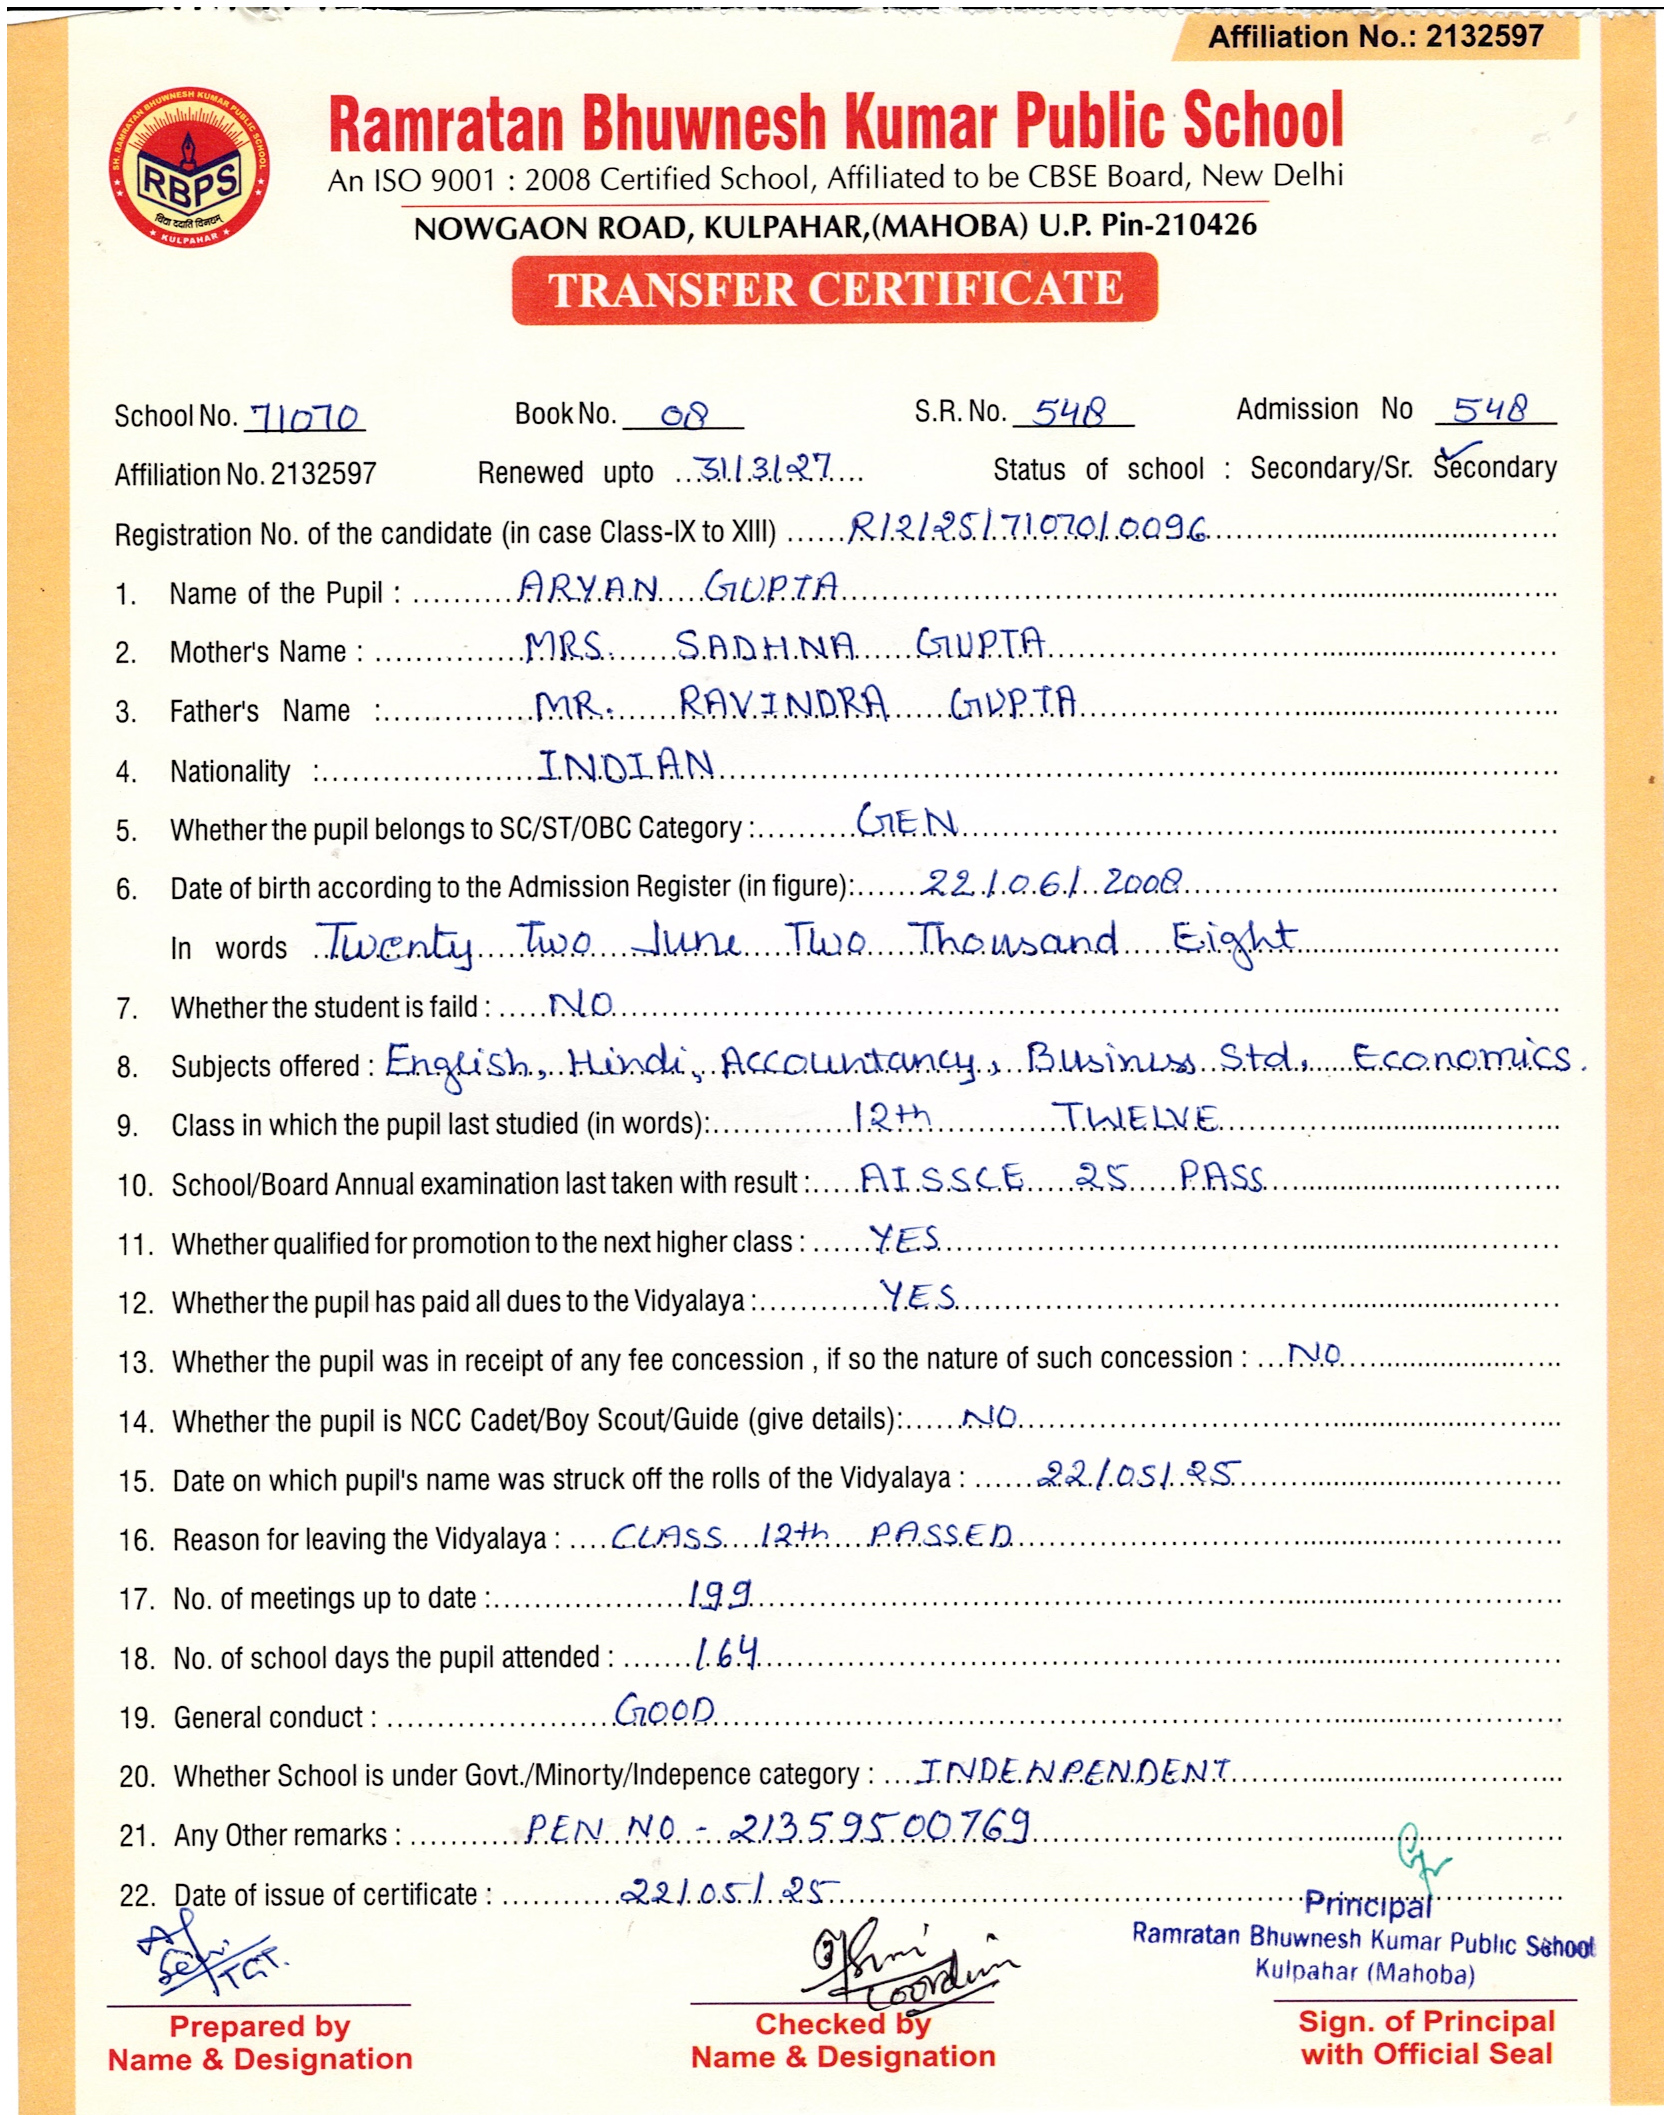 Affiliation No.: 2132597
SH. RAMRATAN BHUWNESH KUMAR PUBLIC SCHOOL
RBPS
विद्या ददाति विनयम्
KULPAHAR
Ramratan Bhuwnesh Kumar Public School
An ISO 9001 : 2008 Certified School, Affiliated to be CBSE Board, New Delhi
NOWGAON ROAD, KULPAHAR,(MAHOBA) U.P. Pin-210426
TRANSFER CERTIFICATE
School No. 71070 Book No. 08 S.R. No. 548 Admission No 548
Affiliation No. 2132597 Renewed upto 31/3/27 Status of school : Secondary/Sr. Secondary
Registration No. of the candidate (in case Class-IX to XIII) R/2/25/71070/0096
1. Name of the Pupil : ARYAN GUPTA
2. Mother's Name : MRS. SADHNA GUPTA
3. Father's Name : MR. RAVINDRA GUPTA
4. Nationality : INDIAN
5. Whether the pupil belongs to SC/ST/OBC Category : GEN
6. Date of birth according to the Admission Register (in figure): 22/06/2008
In words Twenty Two June Two Thousand Eight
7. Whether the student is faild : NO
8. Subjects offered : English, Hindi, Accountancy, Business Std, Economics.
9. Class in which the pupil last studied (in words): 12th TWELVE
10. School/Board Annual examination last taken with result : AISSCE 25 PASS
11. Whether qualified for promotion to the next higher class : YES
12. Whether the pupil has paid all dues to the Vidyalaya : YES
13. Whether the pupil was in receipt of any fee concession , if so the nature of such concession : NO
14. Whether the pupil is NCC Cadet/Boy Scout/Guide (give details): NO
15. Date on which pupil's name was struck off the rolls of the Vidyalaya : 22/05/25
16. Reason for leaving the Vidyalaya : CLASS 12th PASSED
17. No. of meetings up to date : 199
18. No. of school days the pupil attended : 164
19. General conduct : GOOD
20. Whether School is under Govt./Minorty/Indepence category : INDENPENDENT
21. Any Other remarks : PEN NO - 21359500769
22. Date of issue of certificate : 22/05/25
Principal
Ramratan Bhuwnesh Kumar Public School
Kulpahar (Mahoba)
TGT.
Prepared by
Name & Designation
Checked by
Name & Designation
Sign. of Principal
with Official Seal